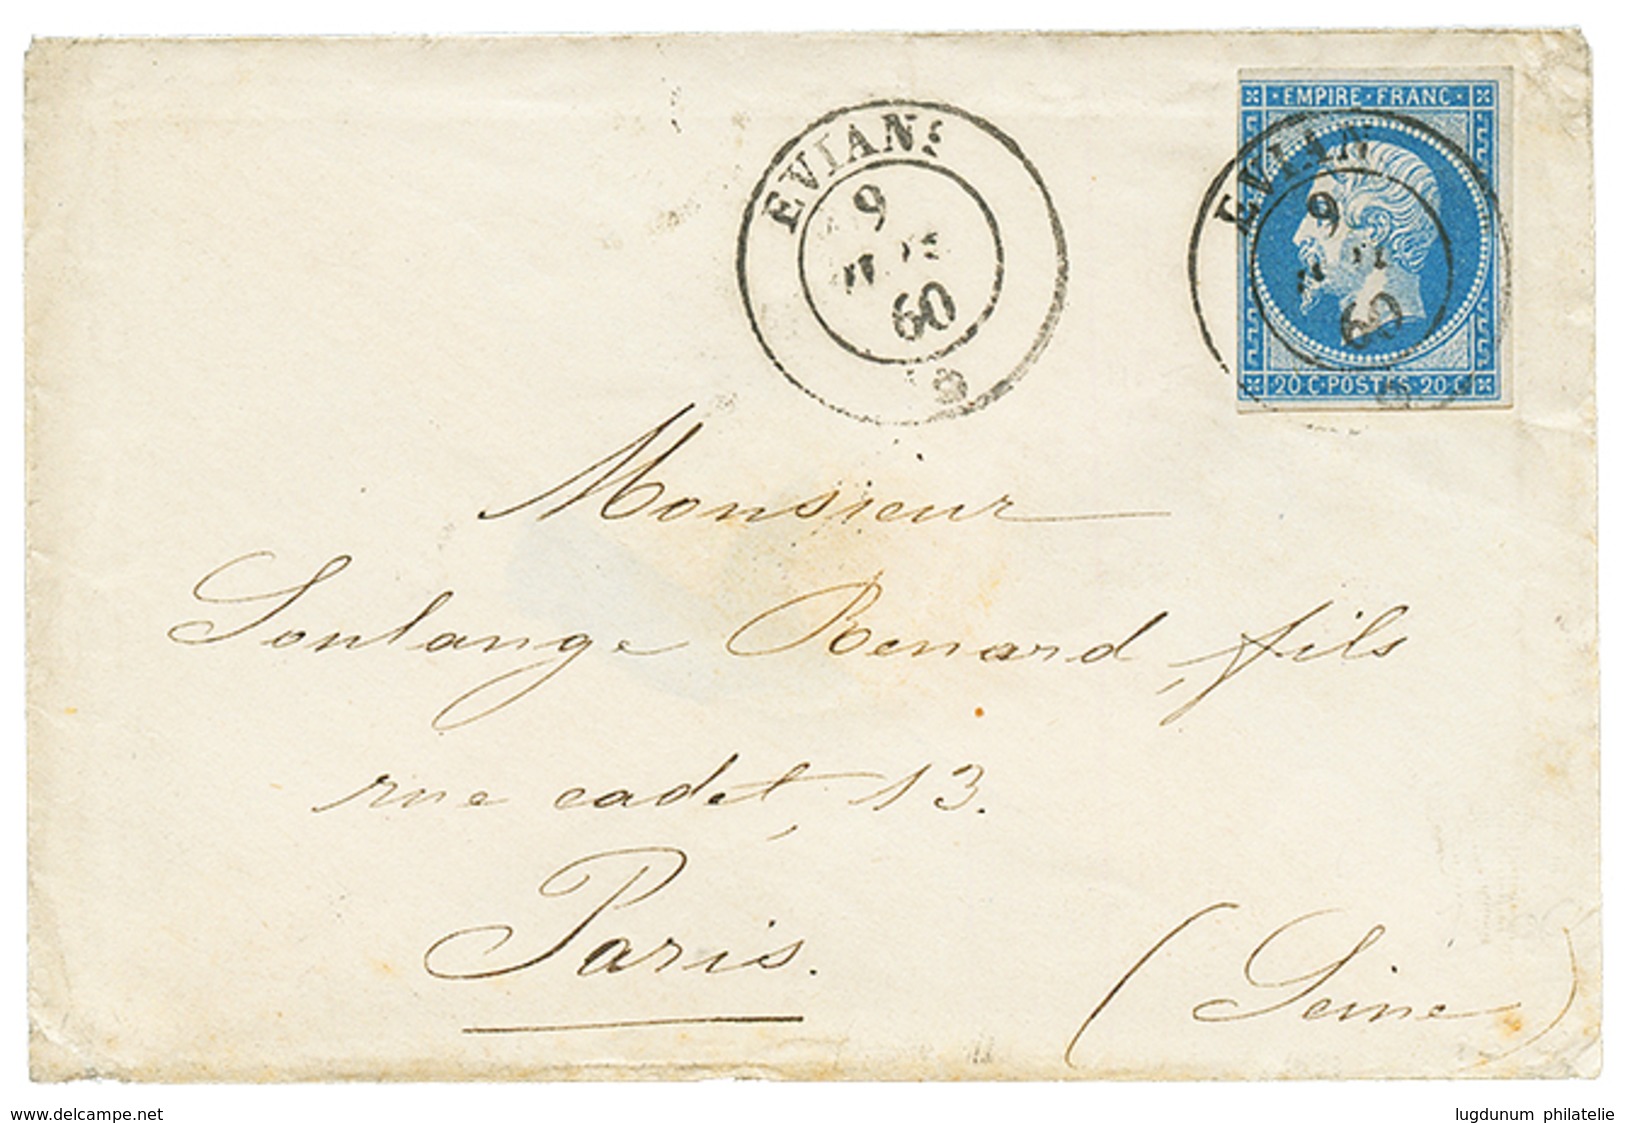 EMPIRE · FRANC ·
EVIANS
9
60
EVIAN
9
60
20 C · POSTES · 20 C
Monsieur
Soulange Renard, fils
rue cadet, 13.
Paris.
(Seine)
www.delcampe.net
lugdunum philatelie